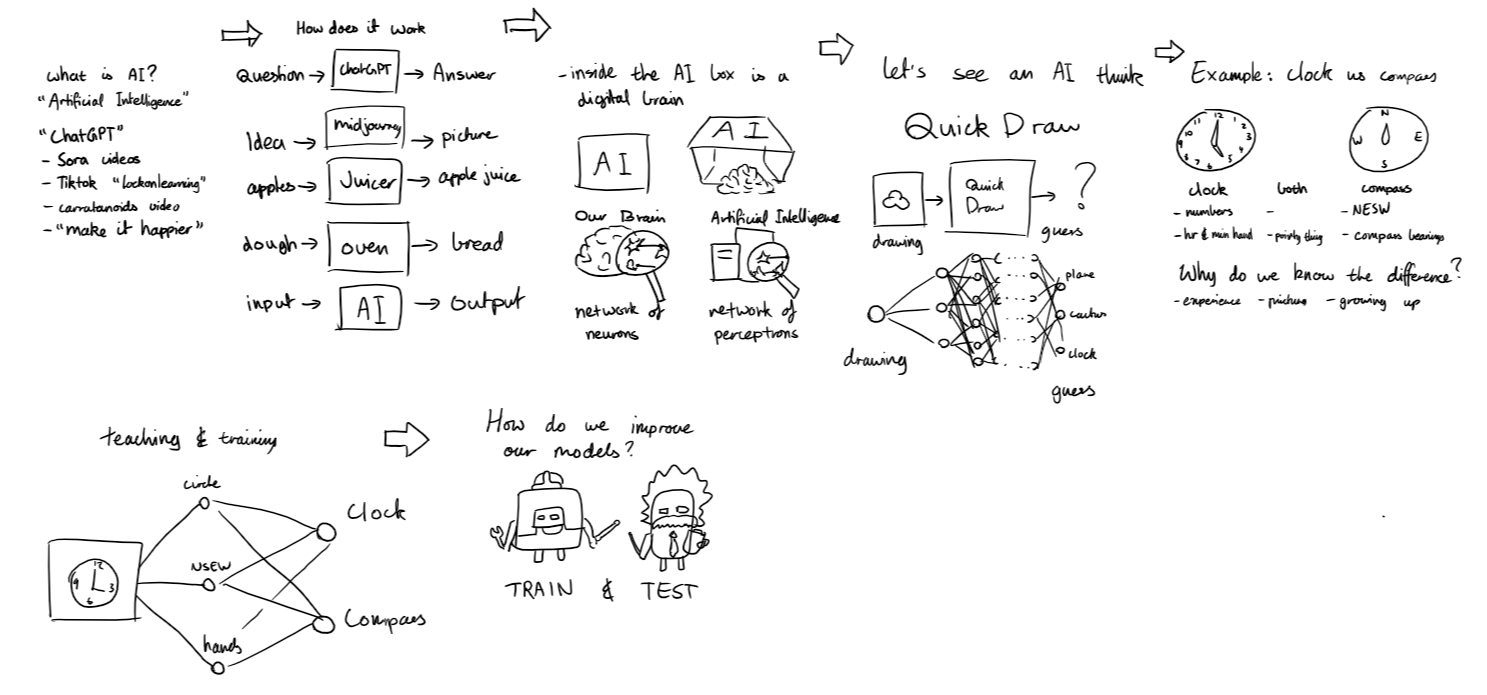 What is AI?
"Artificial Intelligence"
"ChatGPT"
- Sora videos
- Tiktok "lockonlearning"
- carratanoids video
- "make it happier"
How does it work
Question → ChatGPT → Answer
Idea → midjourney → picture
apples → Juicer → apple juice
dough → oven → bread
input → AI → output
- inside the AI box is a
digital brain
AI
AI
Our Brain
network of
neurons
Artificial Intelligence
network of
perceptrons
let's see an AI think
Quick Draw
Quick
Draw
?
drawing
guess
plane
cactus
clock
drawing
guess
Example: clock vs compass
12
1
2
3
4
5
6
7
8
9
10
11
N
W
E
S
clock
- numbers
- hr & min hand
both
-
- pointy thing
compass
- NESW
- compass bearings
Why do we know the difference?
- experience - pictures - growing up
teaching & training
12
9
3
6
circle
NSEW
hands
Clock
Compass
How do we improve
our models?
TRAIN & TEST